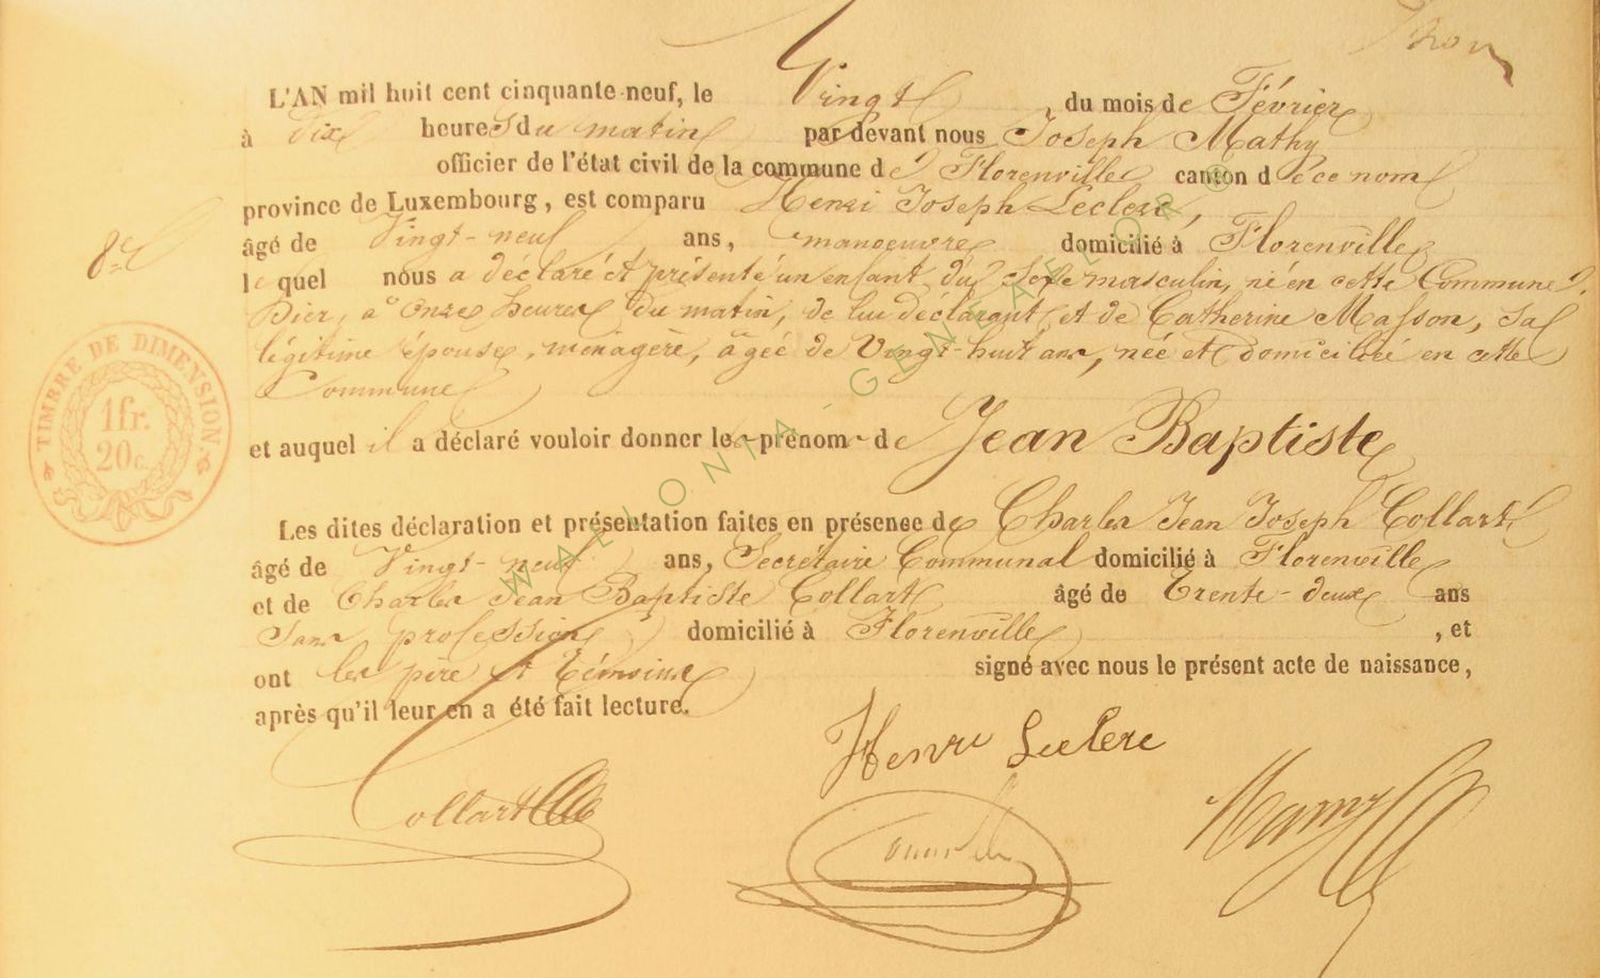 L'AN mil huit cent cinquante-neuf, le Vingt, du mois de Février
à dix heures du matin par devant nous Joseph Mathy
officier de l'état civil de la commune de Florenville canton de ce nom
province de Luxembourg, est comparu Henri Joseph Leclerc,
âgé de Vingt-neuf ans, manoeuvre domicilié à Florenville
8e
lequel nous a déclaré et présenté un enfant du Sexe masculin, né en cette Commune
hier, à onze heures du matin, de lui déclarant et de Catherine Masson, Sa
légitime épouse, ménagère, âgée de Vingt-huit ans, née et domiciliée en cette
Commune
et auquel il a déclaré vouloir donner les prénoms de Jean Baptiste
TIMBRE DE DIMENSION
1 fr.
20 c.
Les dites déclaration et présentation faites en présence de Charles Jean Joseph Collart
âgé de Vingt-neuf ans, Secrétaire Communal domicilié à Florenville
et de Charles Jean Baptiste Collart âgé de Trente-deux ans
Sans profession domicilié à Florenville, et
ont les père et témoins signé avec nous le présent acte de naissance,
après qu'il leur en a été fait lecture.
Henri Leclerc
Collart
WALLONIA-GENEALOR